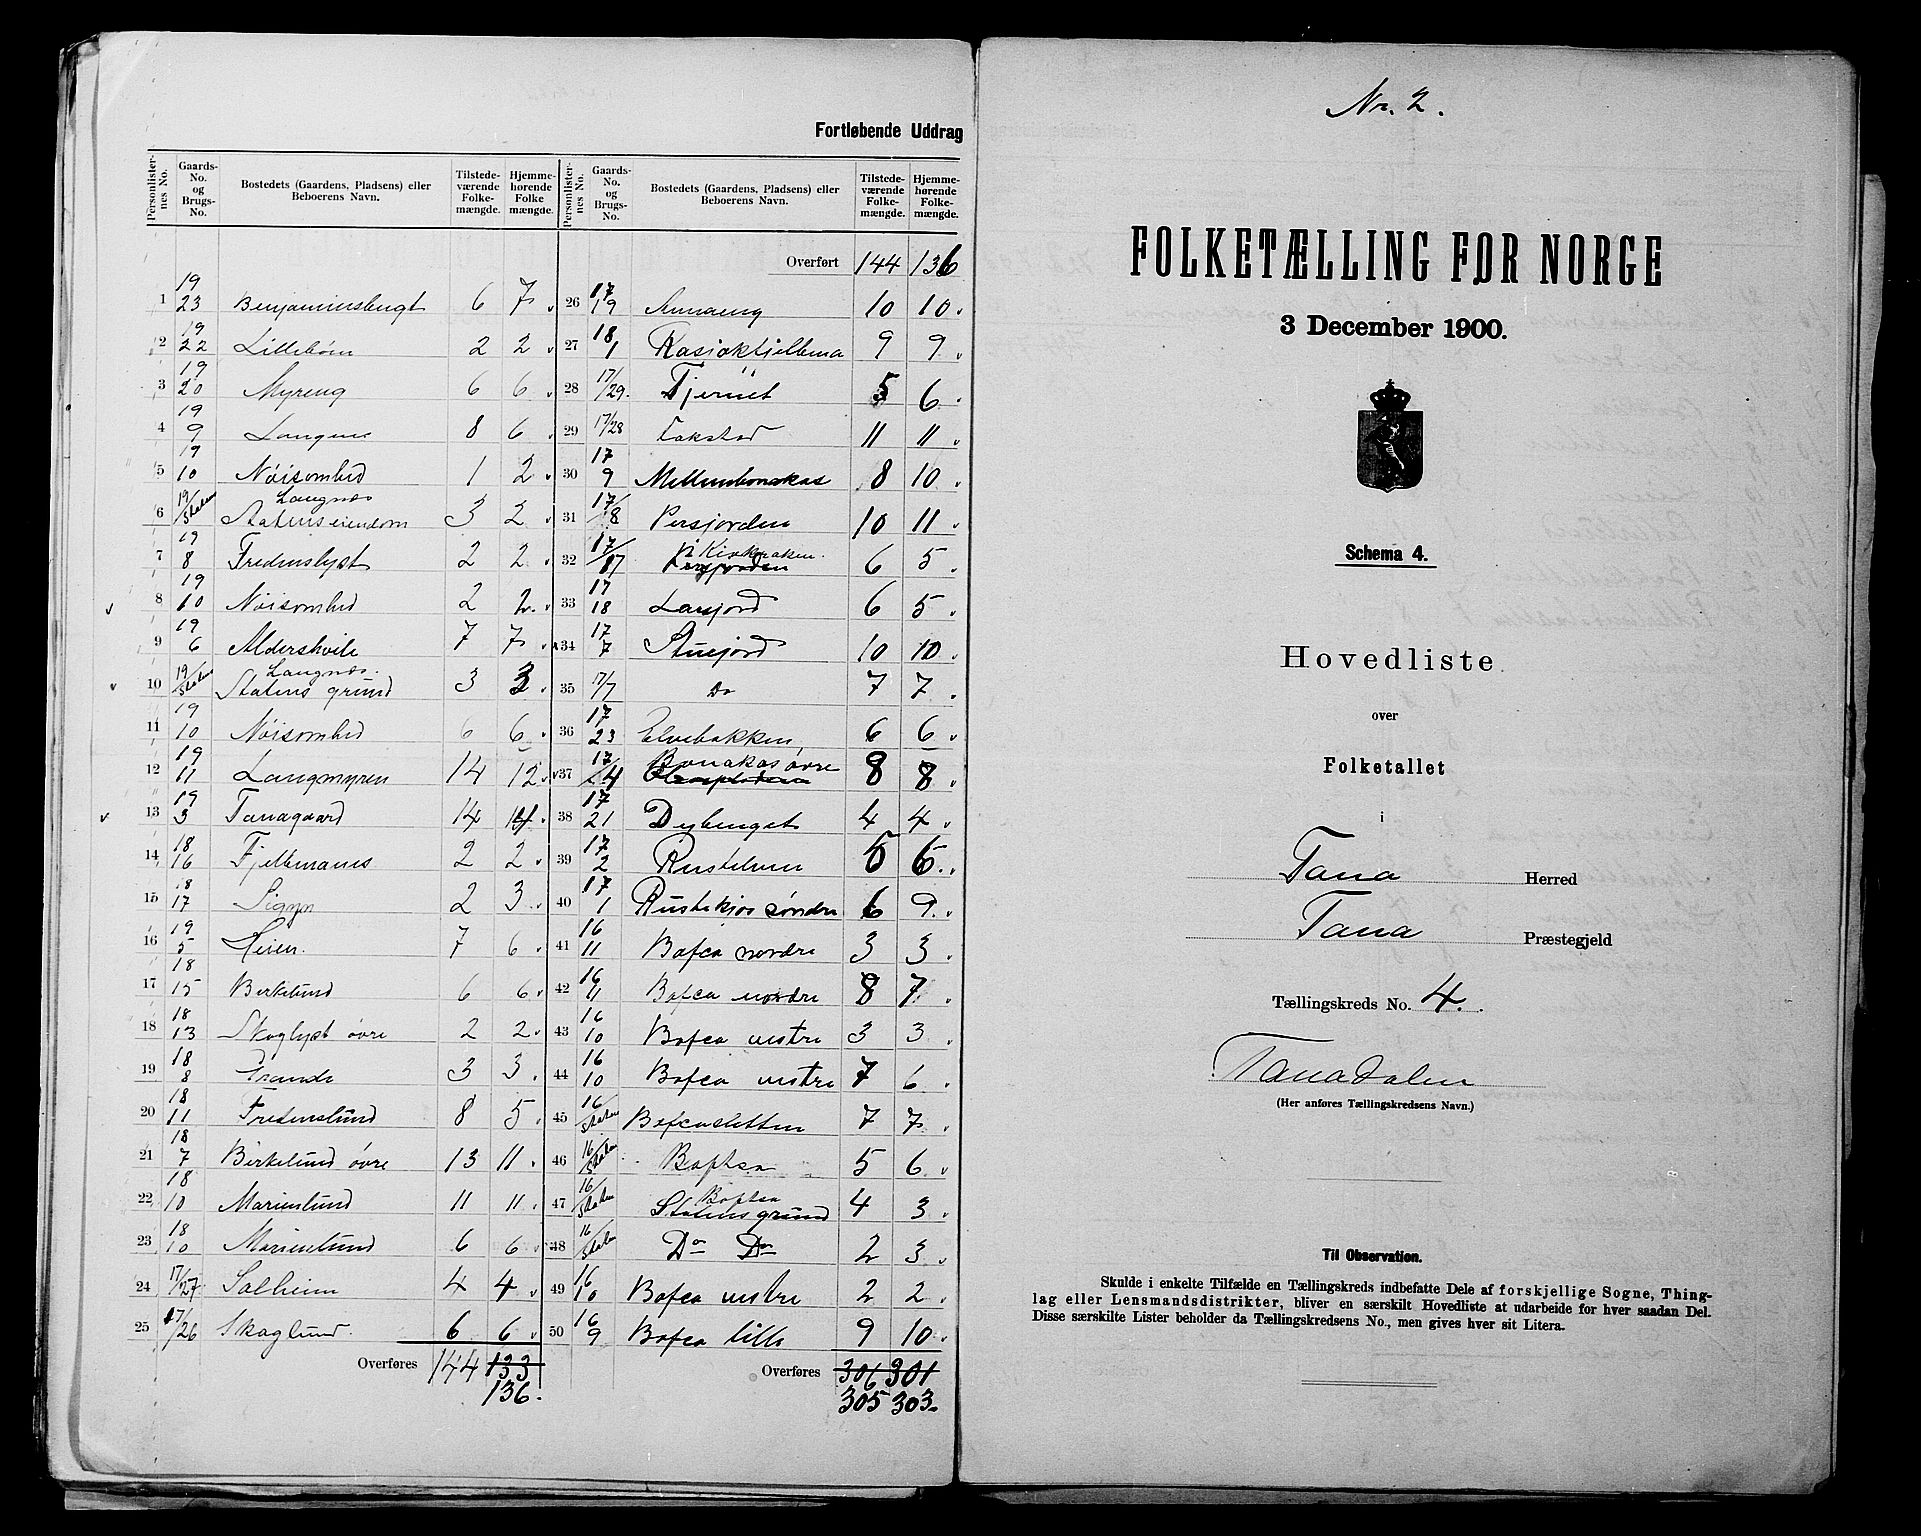 Fortløbende Uddrag
Personlister-nes No. | Gaards-No. og Brugs-No. | Bostedets (Gaardens, Pladsens) eller Beboerens Navn. | Tilstede-værende Folke-mængde. | Hjemme-hørende Folke mængde.
1 | 19/23 | Benjaminsbugt | 6 | 7
2 | 19/22 | Lillebøm | 2 | 2
3 | 19/20 | Myreng | 6 | 6
4 | 19/9 | Langnes | 8 | 6
5 | 19/10 | Nöisomhed | 1 | 2
6 | 19/Staten | Langnæs Statens eiendom | 3 | 2
7 | 19/8 | Fredenslyst | 2 | 2
8 | 19/10 | Nöisomhed | 2 | 2
9 | 19/6 | Aldershvile | 7 | 7
10 | 19/Staten | Langnæs Statens grund | 3 | 3
11 | 19/10 | Nöisomhed | 6 | 6
12 | 19/11 | Langmyren | 14 | 12
13 | 19/3 | Tanagaard | 14 | 14
14 | 18/16 | Fjellmanes | 2 | 2
15 | 18/17 | Signes | 2 | 3
16 | 19/5 | Heien | 7 | 6
17 | 18/15 | Birkelund | 6 | 6
18 | 18/13 | Skoglyst övre | 2 | 2
19 | 18/8 | Grande | 3 | 3
20 | 18/11 | Fredenslund | 8 | 5
21 | 18/7 | Birkelund övre | 13 | 11
22 | 18/10 | Marienlund | 11 | 11
23 | 18/10 | Marienlund | 6 | 6
24 | 17/27 | Solheim | 4 | 4
25 | 17/26 | Skoglund. | 6 | 6
Overføres 144 133
136.
Personlister-nes No. | Gaards-No. og Brugs-No. | Bostedets (Gaardens, Pladsens) eller Beboerens Navn. | Tilstede-værende Folke-mængde. | Hjemme-hørende Folke mængde.
Overført 144 136
26 | 17/19 | Annaeng | 10 | 10
27 | 18/1 | Rasjokfjellema | 9 | 9
28 | 17/29 | Tjernet | 5 | 6
29 | 17/28 | Lakstad | 11 | 11
30 | 17/9 | Mellembonakas | 8 | 10
31 | 17/8 | Persjorden | 10 | 11
32 | 17/17 | Kirkbakken. Persjorden | 6 | 5
33 | 17/18 | Larsjord | 6 | 5
34 | 17/7 | Stuejord | 10 | 10
35 | 17/7 | Do | 7 | 7
36 | 17/23 | Elvebakken | 6 | 6
37 | 17/4 | Bonakas övre | 8 | 8
38 | 17/21 | Dybenget | 4 | 4
39 | 17/2 | Rustelven | 5 | 6
40 | 17/1 | Rustekjos söndre | 6 | 9
41 | 16/11 | Bofca nordre | 3 | 3
42 | 16/11 | Bofca nordre | 8 | 7
43 | 16/10 | Bofca vestre | 3 | 3
44 | 16/10 | Bofca vestre | 7 | 6
45 | 16/Staten | Bofcasletten | 7 | 7
46 | 16/Staten | Boftsa | 5 | 6
47 | 16/Staten | Boftsa Statens grund | 4 | 3
48 | 16/Staten | Do Do | 2 | 3
49 | 16/10 | Bofca vestre | 2 | 2
50 | 16/9 | Bofca lille | 9 | 10
Overføres 306 301
305 303
No. 2.
FOLKETÆLLING FØR NORGE
3 December 1900.
Schema 4.
Hovedliste
over
Folketallet
i
Tana Herred
Tana Præstegjeld
Tællingskreds No. 4.
Tanadalen
(Her anføres Tællingskredsens Navn.)
Til Observation.
Skulde i enkelte Tilfælde en Tællingskreds indbefatte Dele af forskjellige Sogne, Thing-
lag eller Lensmandsdistrikter, bliver en særskilt Hovedliste at udarbeide for hver saadan Del.
Disse særskilte Lister beholder da Tællingskredsens No., men gives hver sit Litera.